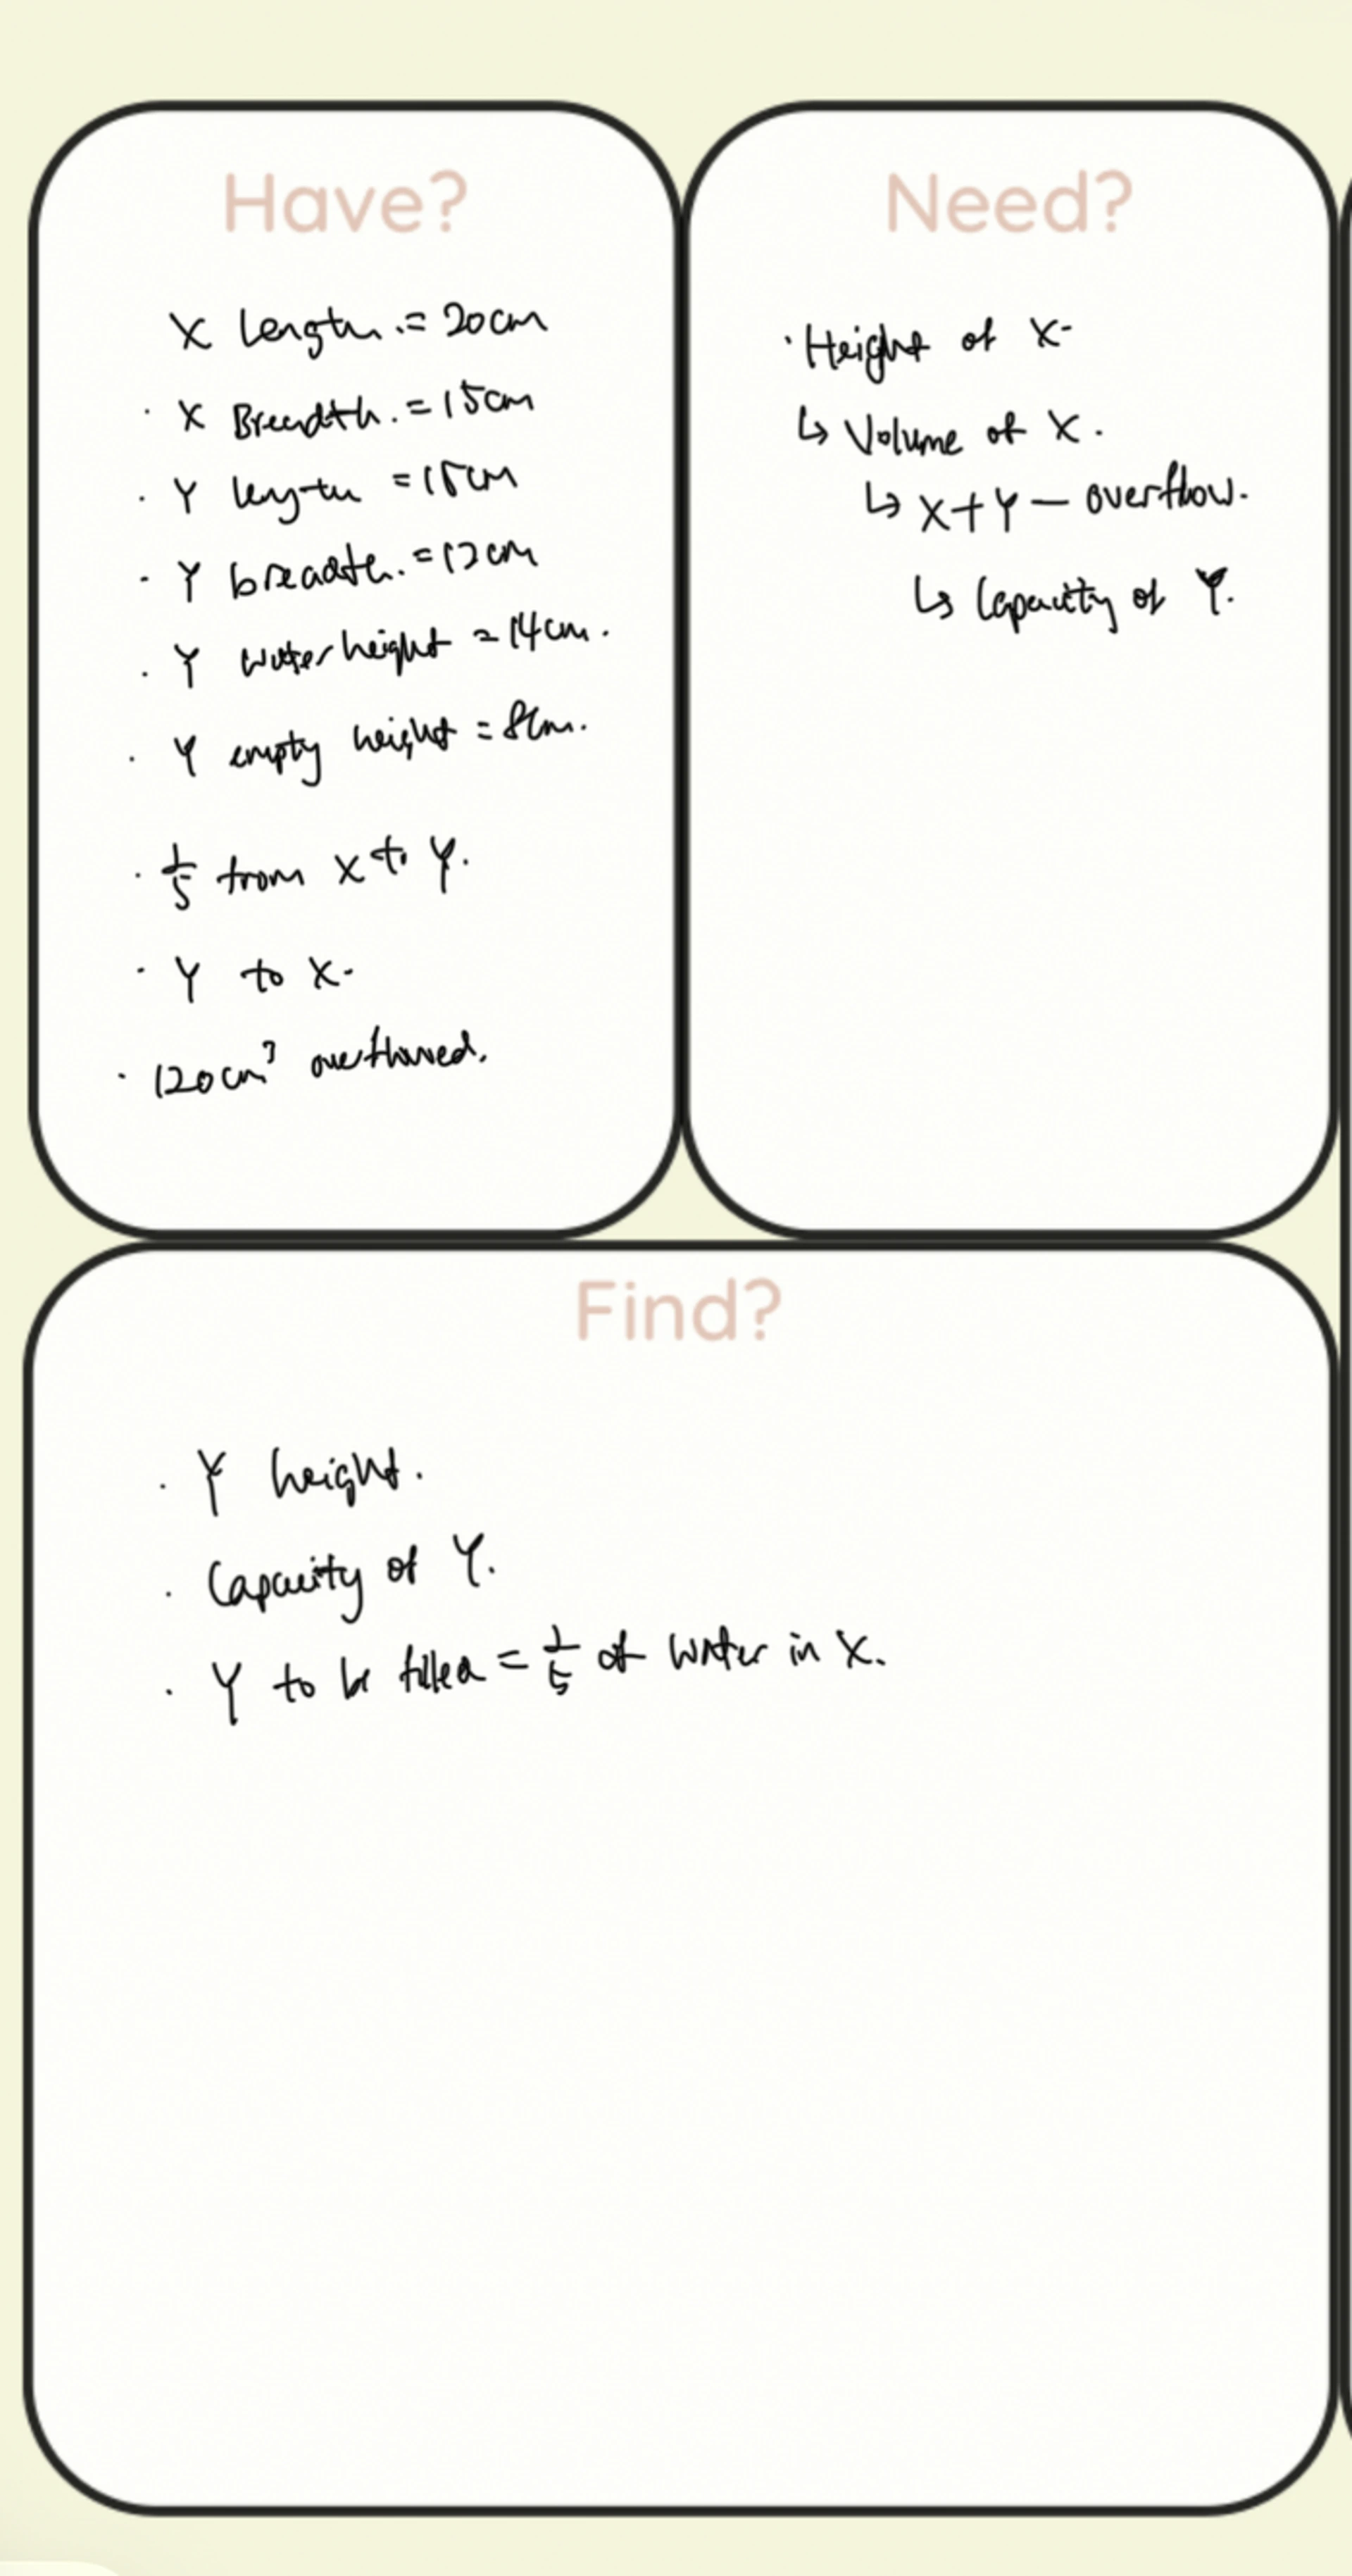 Have?
X Length = 20cm
· X Breadth. = 15cm
· Y length = 18cm
· Y breadth. = 12cm
· Y water height = 14cm.
· Y empty height = 8cm.
· 1/5 from X to Y.
· Y to X.
· 120cm³ overflowed.
Need?
· Height of X.
↳ Volume of X.
↳ X+Y – overflow.
↳ Capacity of Y.
Find?
· Y height.
· Capacity of Y.
· Y to be filled = 1/5 of water in X.